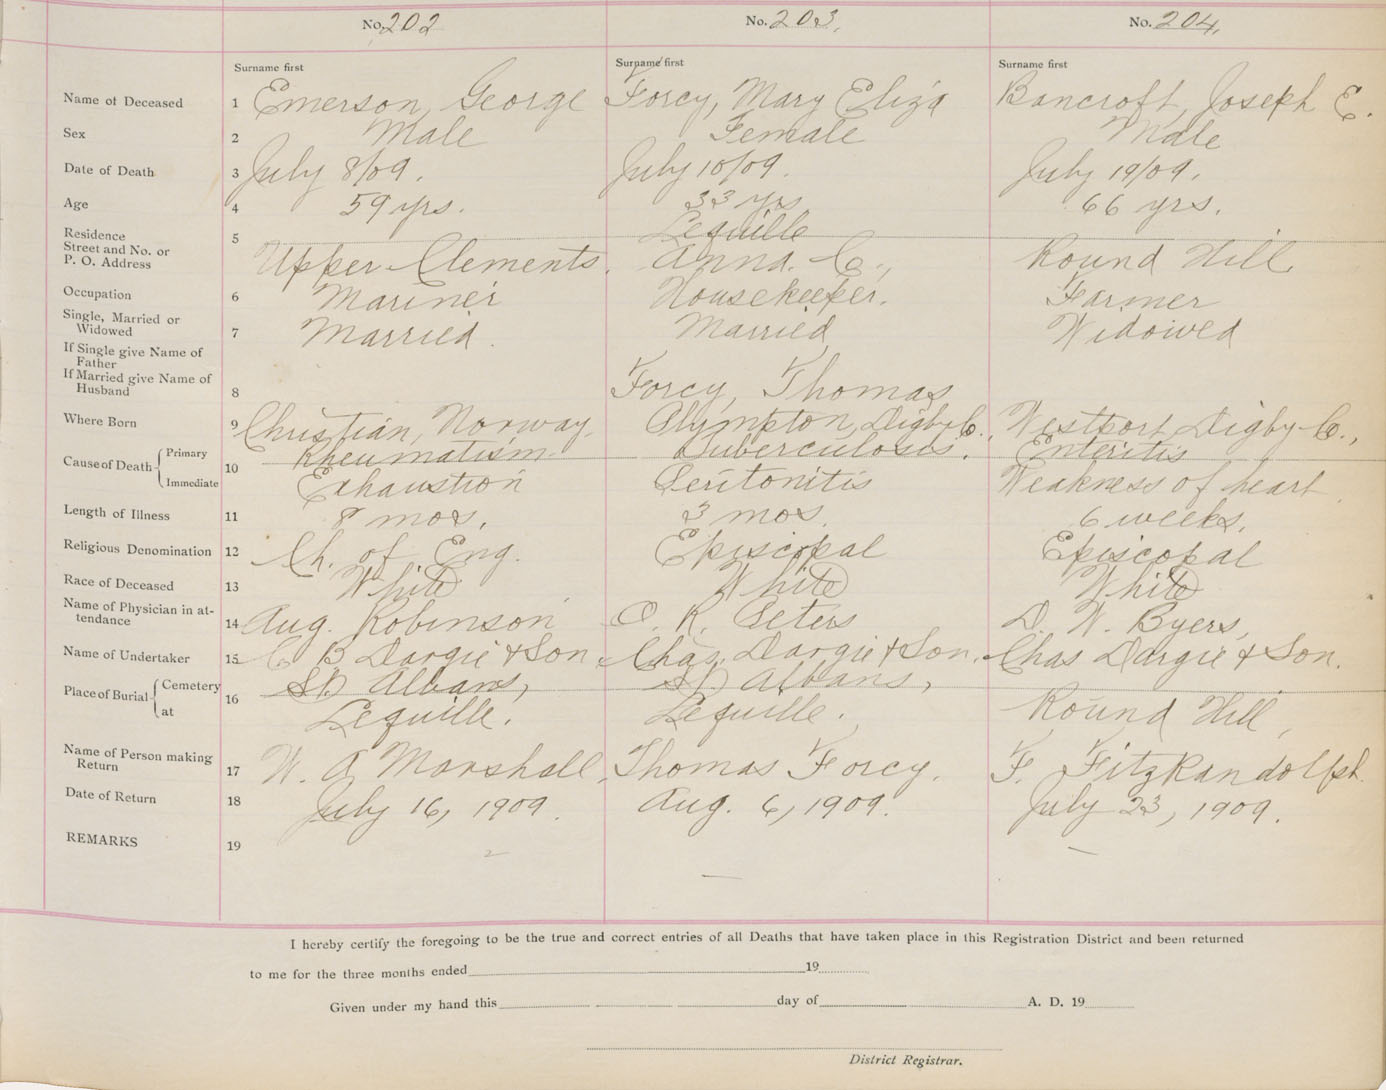 No. 202 No. 203. No. 204.
Surname first Surname first Surname first
Name of Deceased 1 Emerson, George Forcy, Mary Eliza Bancroft, Joseph E.
Sex 2 Male Female Male
Date of Death 3 July 8/09. July 10/09. July 19/09.
Age 4 59 yrs. 33 yrs 66 yrs.
Residence 5 Lequille
Street and No. or
P. O. Address Upper Clements. Anna. C., Round Hill
Occupation 6 Mariner Housekeeper. Farmer
Single, Married or
Widowed 7 Married. Married Widowed
If Single give Name of
Father
If Married give Name of
Husband 8 Forcy, Thomas
Where Born 9 Christian, Norway. Plympton, Digby C., Westport Digby C.,
Cause of Death Primary 10 Rheumatism Tuberculosis. Enteritis
Immediate Exhaustion Peritonitis Weakness of heart.
Length of Illness 11 8 mos. 3 mos. 6 weeks.
Religious Denomination 12 Ch. of Eng. Episcopal Episcopal
Race of Deceased 13 White White White
Name of Physician in at-
tendance 14 Aug. Robinson O. R. Peters D. W. Byers,
Name of Undertaker 15 C B Dargie & Son Chas. Dargie & Son. Chas Dargie & Son.
Place of Burial Cemetery 16 St Albans, St Albans,
at Lequille. Lequille. Round Hill,
Name of Person making
Return 17 W. A Marshall, Thomas Forcy. F. FitzRandolph
Date of Return 18 July 16, 1909. Aug. 6, 1909. July 23, 1909.
REMARKS 19
I hereby certify the foregoing to be the true and correct entries of all Deaths that have taken place in this Registration District and been returned
to me for the three months ended 19
Given under my hand this day of A. D. 19
District Registrar.